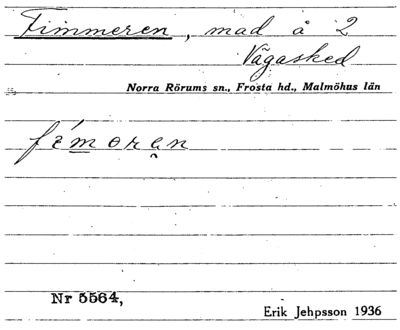 Fimmeren, mad å 2
Vägasked
Norra Rörums sn., Frosta hd., Malmöhus län
fémoran
Nr 5564,
Erik Jehpsson 1936